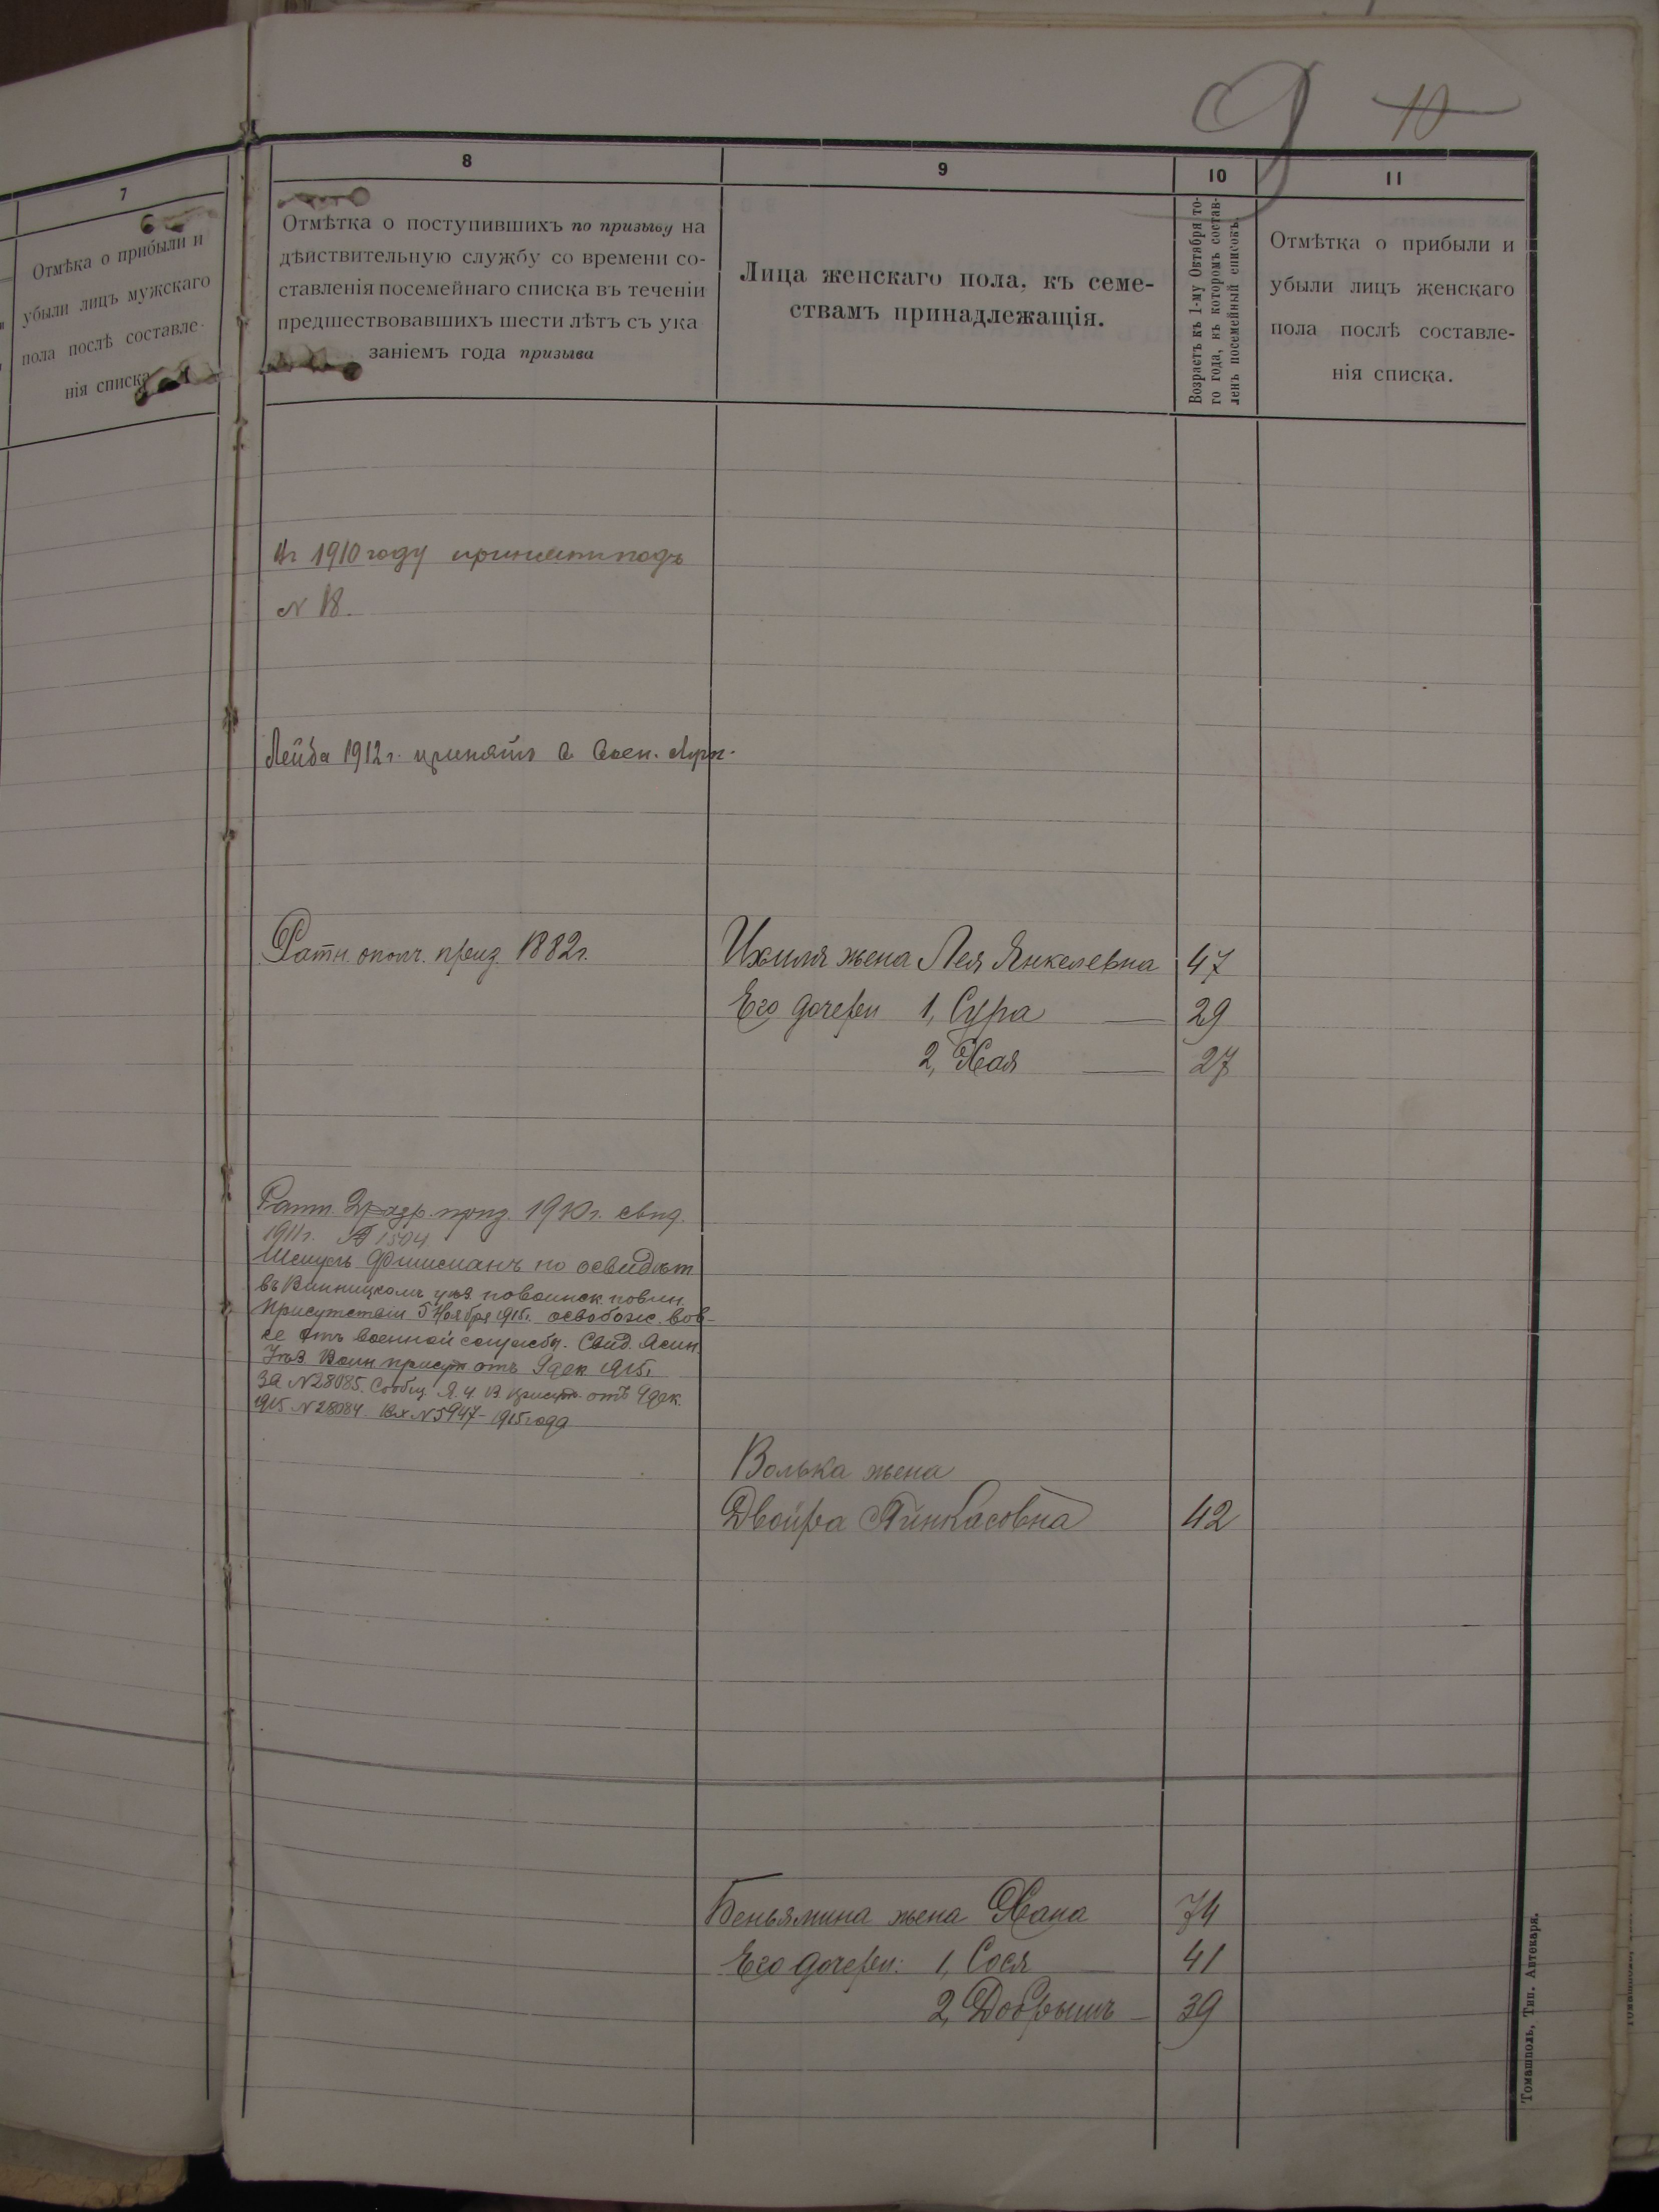 9 10
7
Отмѣка о прибыли и
убыли лицъ мужскаго
пола послѣ составле-
нія списка
8
Отмѣтка о поступившихъ по призыву на
дѣйствительную службу со времени со-
ставленія посемейнаго списка въ теченіи
предшествовавшихъ шести лѣтъ съ ука
заніемъ года призыва
9
Лица женскаго пола, къ семе-
ствамъ принадлежащія.
10
Возрастъ къ 1-му Октября то-
го года, къ которомъ состав-
ленъ посемейный списокъ
11
Отмѣтка о прибыли и
убыли лицъ женскаго
пола послѣ составле-
нія списка.
1910 году принятъ подъ
N 18.
Лейба 1912 г. принятъ в воен.
Ратн. ополч. приз. 1882 г.
Ихиля жена Лея Янкелевна 47
Его дочери 1, Сура — 29
2, Хая — 27
Ратн. 2 разр. приз. 1910 г. свид.
1911 г. № 1504.
Шмуль Фишманъ по освидѣт
въ Винницкомъ уѣз. повоинск. повин.
присутствіи 5 Ноября 1915 г. освобожс. вов-
се отъ военной службы. Свид. Ясин.
Уѣз. Воин присут отъ 9 дек 1915 г.
за N 28085. Сообщ. Я. У. В. присут. отъ 9 дек.
1915 N 28084. Вх N 5947 - 1915 года
Волька жена
Двойра Пинкасовна 42
Беньямина жена Хана 74
Его дочери: 1, Сося — 41
2, Добрышъ — 39
Томашполь, Тип. Аптекаря.